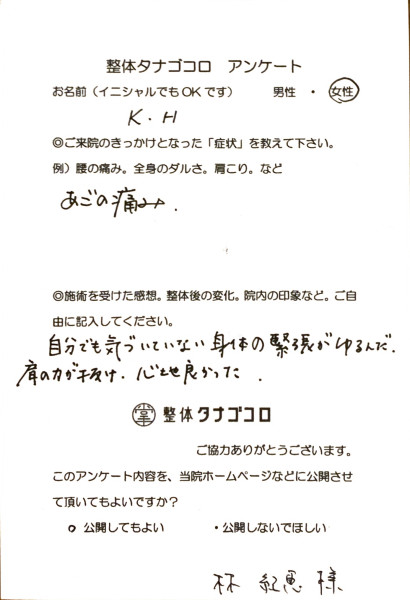 整体タナゴコロ アンケート
お名前（イニシャルでもOKです） 男性 ・ 女性
K．H
◎ご来院のきっかけとなった「症状」を教えて下さい。
例）腰の痛み。全身のダルさ。肩こり。など
あごの痛み．
◎施術を受けた感想。整体後の変化。院内の印象など。ご自
由に記入してください。
自分でも気づいていない身体の緊張がゆるんだ．
肩の力が抜け．心地良かった．
整体タナゴコロ
ご協力ありがとうございます。
このアンケート内容を、当院ホームページなどに公開させ
て頂いてもよいですか？
公開してもよい ・公開しないでほしい
林 紀恵 様